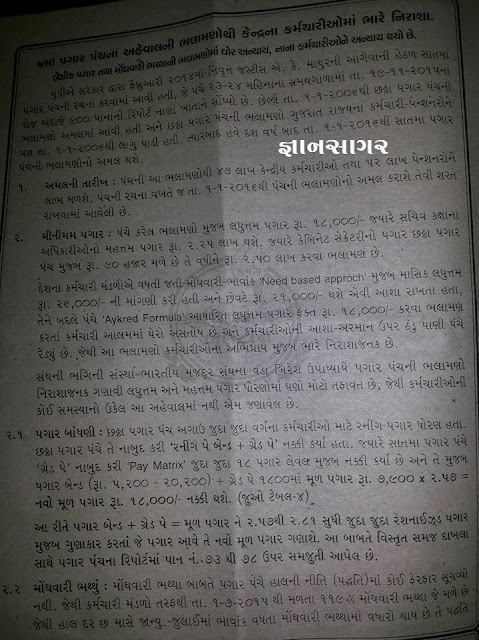 ૭મા પગાર પંચના અહેવાલની ભલામણોથી કેન્દ્રના કર્મચારીઓમાં ભારે નિરાશા.
બેઝીક પગાર તથા મોંઘવારી ભથ્થાની ભલામણોમાં ઘોર અન્યાય, નાના કર્મચારીઓને અન્યાય થયો છે.
યુપીએ સરકાર દ્વારા ફેબ્રુઆરી ૨૦૧૪માં નિવૃત્ત જસ્ટીસ એ. કે. માથુરની આગેવાની હેઠળ સાતમા
પગાર પંચની રચના કરવામાં આવી હતી, જે પંચે ૨૩-૨૪ મહિનાના સમયગાળામાં તા. ૧૯-૧૧-૨૦૧૫ના
રોજ અંદાજે ૯૦૦ પાનાનો રિપોર્ટ નાણાં ખાતાને સોંપ્યો છે. છેલ્લે તા. ૧-૧-૨૦૦૬થી છઠ્ઠા પગાર પંચની
ભલામણો અમલમાં આવી હતી અને છઠ્ઠા પગાર પંચની ભલામણો ગુજરાત રાજ્યના કર્મચારી-પેન્શનરોને
પણ તા. ૧-૧-૨૦૦૬થી લાગુ પાડી હતી. ત્યારબાદ હવે દશ વર્ષ બાદ તા. ૧-૧-૨૦૧૬થી સાતમા પગાર
પંચની ભલામણોનો અમલ થશે.
જ્ઞાનસાગર
૧. અમલની તારીખ : પંચની આ ભલામણોથી ૪૭ લાખ કેન્દ્રીય કર્મચારીઓ તથા પર લાખ પેન્શનરોને
લાભ મળશે. પંચની રચના વખતે જ તા. ૧-૧-૨૦૧૬થી પંચની ભલામણોનો અમલ કરાશે તેવી શરત
રાખવામાં આવેલી છે.
૨. મીનીમમ પગાર : પંચે કરેલ ભલામણો મુજબ લઘુત્તમ પગાર રૂા. ૧૮,૦૦૦/- જ્યારે સચિવ કક્ષાના
અધિકારીઓનો મહત્તમ પગાર રૂા. ૨.૨૫ લાખ થશે. જ્યારે કેબિનેટ સેક્રેટરીનો પગાર છઠ્ઠા પગાર
પંચ મુજબ રૂા. ૯૦ હજાર મળે છે તે વધીને રૂા. ૨.૫૦ લાખ કરવા ભલામણ છે.
દેશના કર્મચારી મંડળોએ વધતી જતી મોંઘવારી-ભાવાંક 'Need based approch' મુજબ માસિક લઘુત્તમ
રૂા. ૨૬,૦૦૦/- ની માંગણી કરી હતી અને છેવટે રૂા. ૨૧,૦૦૦/- થશે એવી આશા રાખતા હતા,
તેને બદલે પંચે 'Aykred Formula' આધારિત લઘુત્તમ પગાર ફક્ત રૂા. ૧૮,૦૦૦/- કરવા ભલામણ
કરતાં કર્મચારી આલમમાં ઘેરો અસંતોષ છે અને કર્મચારીઓની આશા-અરમાન ઉપર ઠંડુ પાણી પંચે
રેડ્યું છે. જેથી આ ભલામણો કર્મચારીઓના અભિપ્રાય મુજબ ભારે નિરાશાજનક છે.
સંઘની ભગિની સંસ્થા-ભારતીય મજદૂર સંઘના વડા બિરેશ ઉપાધ્યાયે પગાર પંચની ભલામણો
નિરાશાજનક ગણાવી લઘુત્તમ અને મહત્તમ પગાર ધોરણોમાં ઘણો મોટો તફાવત છે, જેથી કર્મચારીઓની
કોઈ સમસ્યાનો ઉકેલ આ અહેવાલમાં નથી એમ જણાવેલ છે.
૨.૧ પગાર બાંધણી : છઠ્ઠા પગાર પંચ અગાઉ જુદા જુદા વર્ગના કર્મચારીઓ માટે રનીંગ પગાર ધોરણ હતા.
છઠ્ઠા પગાર પંચે તે નાબુદ કરી 'રનીંગ પે બેન્ડ + ગ્રેડ પે' નક્કી કર્યા હતા. જ્યારે સાતમા પગાર પંચે
'ગ્રેડ પે' નાબુદ કરી 'Pay Matrix' જુદા જુદા ૧૮ પગાર લેવલ મુજબ નક્કી કર્યા છે અને તે મુજબ
પગાર બેન્ડ (રૂા. ૫,૨૦૦ - ૨૦,૨૦૦) + ગ્રેડ પે ૧૮૦૦માં મૂળ પગાર રૂા. ૭,૦૦૦ x ૨.૫૭ =
નવો મૂળ પગાર રૂા. ૧૮,૦૦૦/- નક્કી થશે. (જુઓ ટેબલ-૪)
આ રીતે પગાર બેન્ડ + ગ્રેડ પે = મૂળ પગાર ને ૨.૫૭થી ૨.૮૧ સુધી જુદા જુદા રેશનાઈઝ્ડ પગાર
મુજબ ગુણાકાર કરતાં જે પગાર આવે તે નવો મૂળ પગાર ગણાશે. આ બાબતે વિસ્તૃત સમજ દાખલા
સાથે પગાર પંચના રિપોર્ટમાં પાન નં..૭૩ થી ૭૮ ઉપર સમજુતી આપેલ છે.
૨.૨ મોંઘવારી ભથ્થું : મોંઘવારી ભથ્થા બાબતે પગાર પંચે હાલની નીતિ (પદ્ધતિ)માં કોઈ ફેરફાર સૂચવ્યો
નથી. જેથી કર્મચારી મંડળો તરફથી તા. ૧-૭-૨૦૧૫ થી મળતા ૧૧૯% મોંઘવારી ભથ્થાં જે મળે છે
જેથી હાલ દર છ માસે જાન્યુ.-જુલાઈમાં ભાવાંક વધતા મોંઘવારી ભથ્થામાં વધારો થાય છે તે પદ્ધતિ